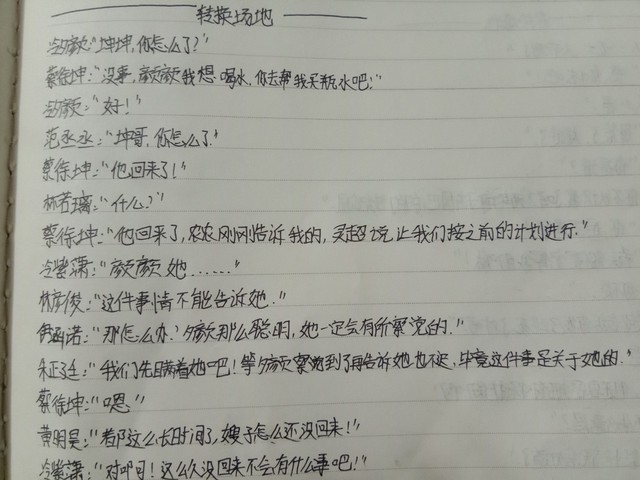 转换场地
冷颜:"坤坤,你怎么了?"
蔡徐坤:"没事,颜颜我想喝水,你去帮我买瓶水吧!"
冷颜:"好!"
范丞丞:"坤哥,你怎么了?"
蔡徐坤:"他回来了!"
林若璃:"什么?"
蔡徐坤:"他回来了,农农刚刚告诉我的,灵超说让我们按之前的计划进行."
冷紫潇:"颜颜她……"
林彦俊:"这件事情不能告诉她."
诺:"那怎么办?颜颜那么聪明,她一定会有所察觉的."
朱正廷:"我们先瞒着她吧!等颜颜察觉到了再告诉她也不迟,毕竟这件事是关于她的."
蔡徐坤:"嗯"
黄明昊:"都这么长时间了,嫂子怎么还没回来!"
冷紫潇:"对啊!这么久没回来不会有什么事吧!"